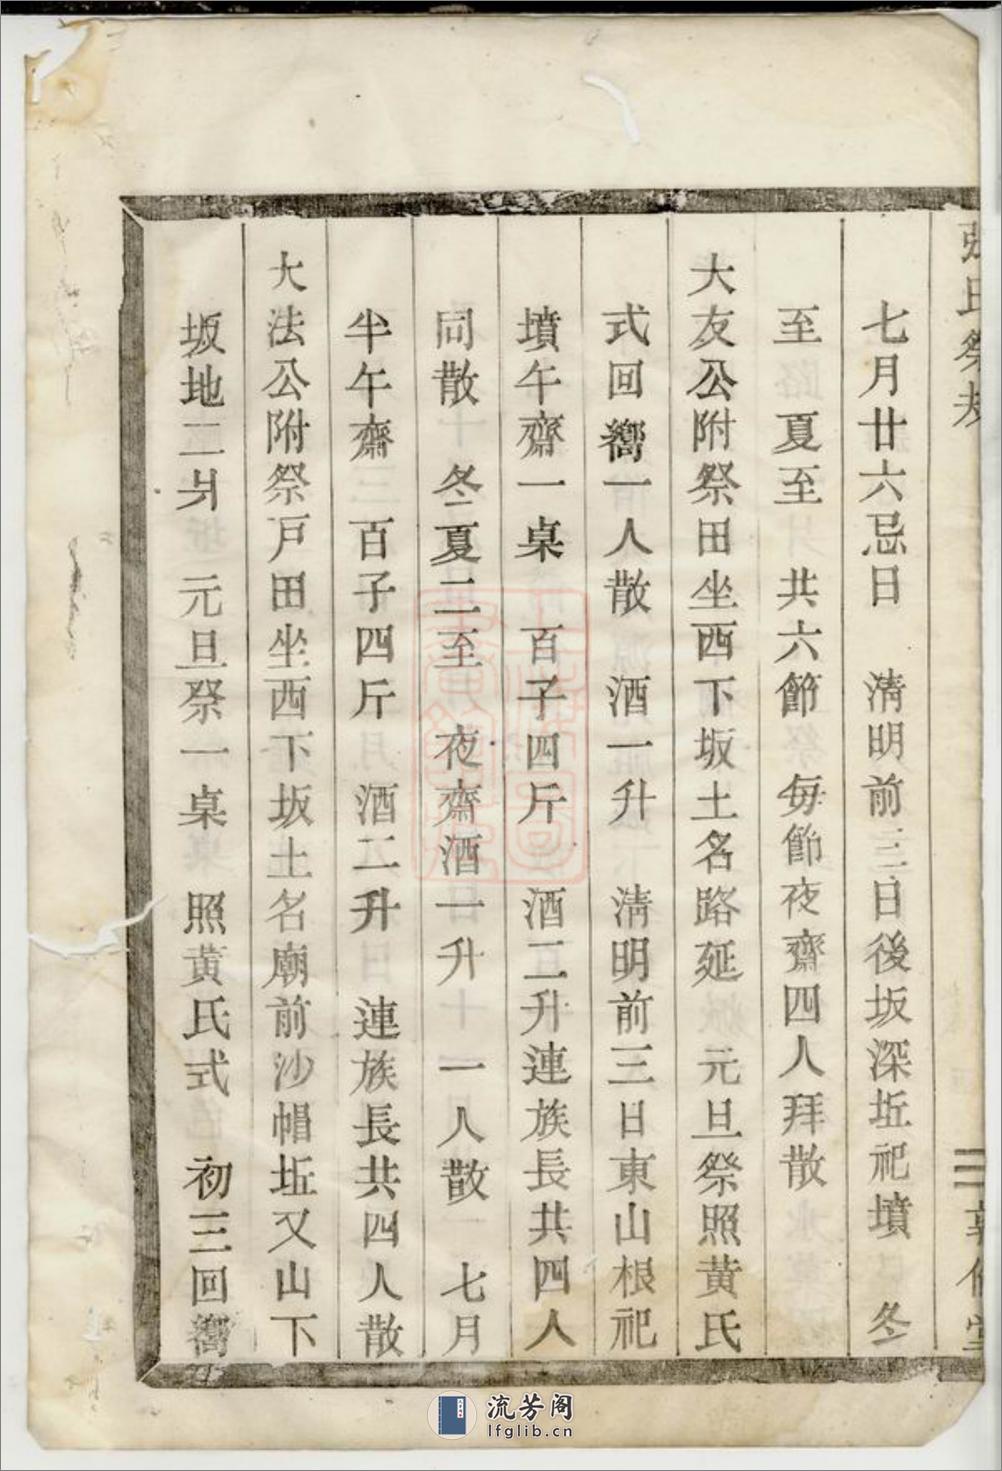 張氏祭規
三 敦倫堂
七月廿六忌日 淸明前三日後坂深坵祀墳 冬
至 夏至 共六節 每節夜齋四人拜散
大友公附祭田坐西下坂土名路延 元旦祭照黃氏
式回嚮一人散 酒一升 淸明前三日東山根祀
墳午齋一桌 百子四斤 酒二升連族長共四人
同散 冬夏二至 夜齋酒一升 一人散 七月
半午齋 百子四斤 酒二升 連族長共四人散
大法公附祭戶田坐西下坂土名廟前沙帽坵又山下
坂地二爿 元旦祭一桌 照黃氏式 初三回嚮
流芳阁
lfglib.cn